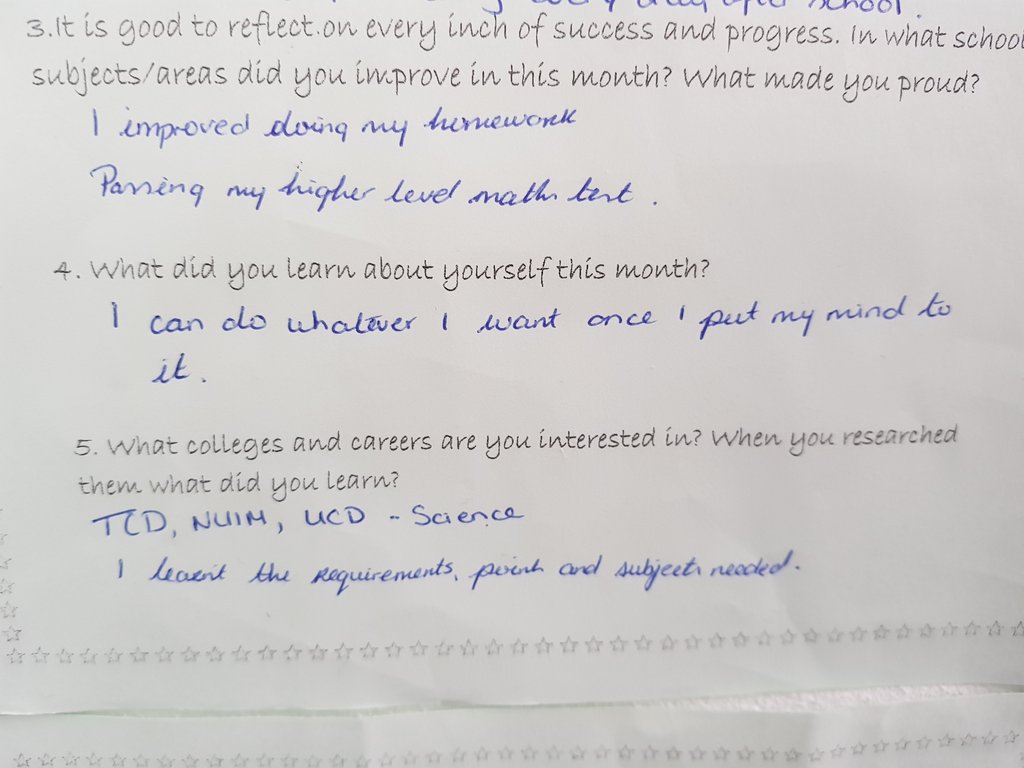 every day after school.
3. It is good to reflect on every inch of success and progress. In what school
subjects/areas did you improve in this month? What made you proud?
I improved doing my homework
Passing my higher level maths test.
4. What did you learn about yourself this month?
I can do whatever I want once I put my mind to
it.
5. What colleges and careers are you interested in? When you researched
them what did you learn?
TCD, NUIM, UCD - Science
I learnt the requirements, points and subjects needed.